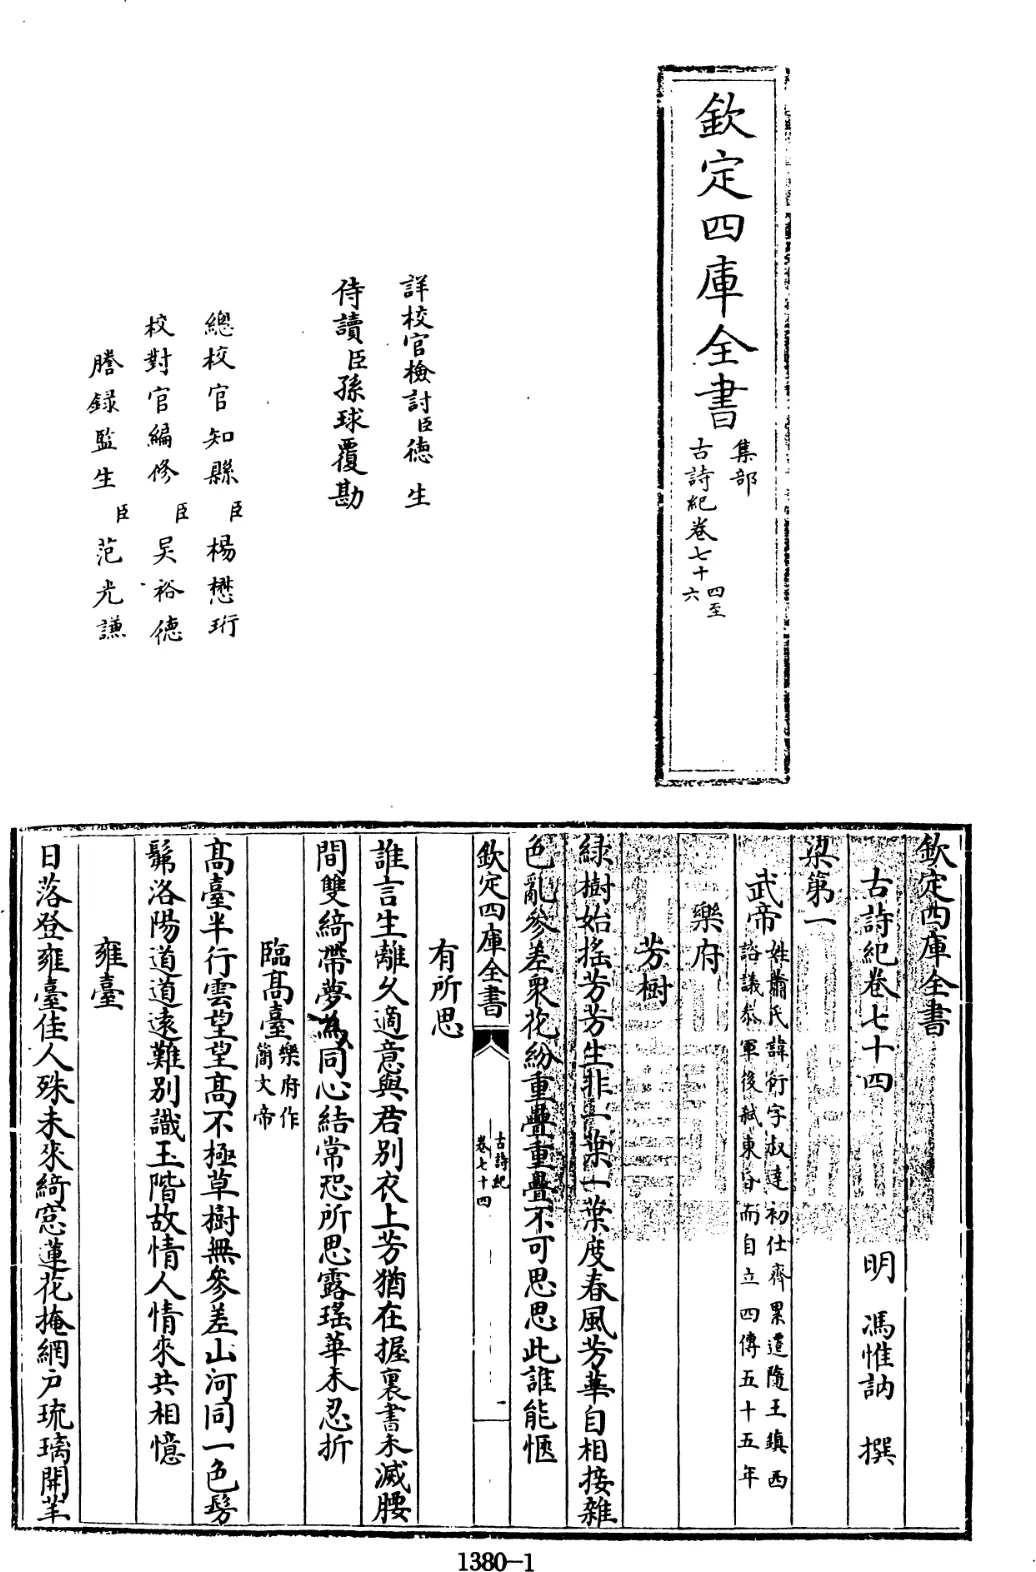 欽定四庫全書
集部
古詩紀卷七十四至
六
詳校官檢討臣德生
侍讀臣孫球覆勘
總校官知縣臣楊懋珩
校對官編修臣吴裕德
謄錄監生臣范光謙
欽定四庫全書
古詩紀卷七十四 明 馮惟訥 撰
梁第一
武帝
姓蕭氏諱衍字叔達初仕齊累遷隨王鎮西
諮議叅軍後弑東昏而自立四傳五十五年
樂府
芳樹
緑樹始揺芳芳生非一葉一葉度春風芳華自相接雜
色亂參差衆花紛重疊重疊不可思思此誰能愜
欽定四庫全書
古詩紀
卷七十四
一
有所思
誰言生離久適意與君别衣上芳猶在握裏書未滅腰
間雙綺帶夢為同心結常恐所思露瑶華未忍折
臨髙臺
樂府作
簡文帝
髙臺半行雲望望髙不極草樹無參差山河同一色髣
髴洛陽道道遠難别識玉階故情人情來共相憶
雍臺
日落登雍臺佳人殊未來綺窓蓮花掩網户琉璃開䒠
1380-1